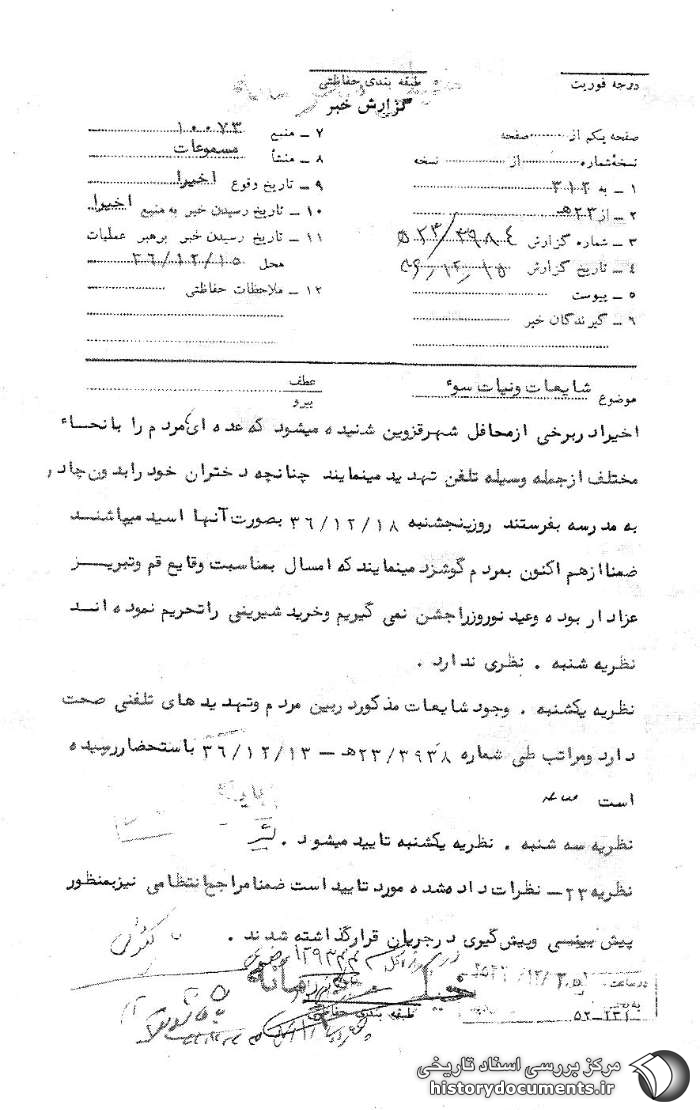 درجه فوریت
طبقه بندی حفاظتی
گزارش خبر
صفحه یکم از صفحه
نسخه شماره از نسخه
۱ ـ به ۳۱۲
۲ ـ از ۲۳هـ
۳ ـ شماره گزارش
۴ ـ تاریخ گزارش
۵ ـ پیوست
۶ ـ گیرندگان خبر
۷ ـ منبع ۱۰۰۷۳
۸ ـ منشأ مسموعات
۹ ـ تاریخ وقوع اخیرا
۱۰ ـ تاریخ رسیدن خبر به منبع اخیرا
۱۱ ـ تاریخ رسیدن خبر برهبر عملیات
محل ۳۶/۱۲/۱۵
۱۲ ـ ملاحظات حفاظتی
موضوع شایعات و نیات سوء
عطف
پیرو
اخیرا در برخی از محافل شهر قزوین شنیده میشود که عده ای مردم را با نحاء
مختلف از جمله وسیله تلفن تهدید مینمایند چنانچه دختران خود را بدون چادر
به مدرسه بفرستند روز پنجشنبه ۳۶/۱۲/۱۸ بصورت آنها اسید میپاشند
ضمنا از هم اکنون بمردم گوشزد مینمایند که امسال بمناسبت وقایع قم و تبریز
عزادار بوده و عید نوروز را جشن نمی گیریم و خرید شیرینی را تحریم نموده اند
نظریه شنبه . نظری ندارد .
نظریه یکشنبه . وجود شایعات مذکور در بین مردم و تهدید های تلفنی صحت
دارد و مراتب طی شماره ۲۳/۳۹۳۸هـ ـ ۳۶/۱۲/۱۳ باستحضار رسیده
است
نظریه سه شنبه . نظریه یکشنبه تایید میشود .
نظریه ۲۳ ـ نظرات داده شده مورد تایید است ضمنا مراجع انتظامی نیز بمنظور
پیش بینی و پیش گیری در جریان قرار گذاشته شدند .
طبقه بندی حفاظتی
در ساعت
مرکز بررسی اسناد تاریخی
historydocuments.ir